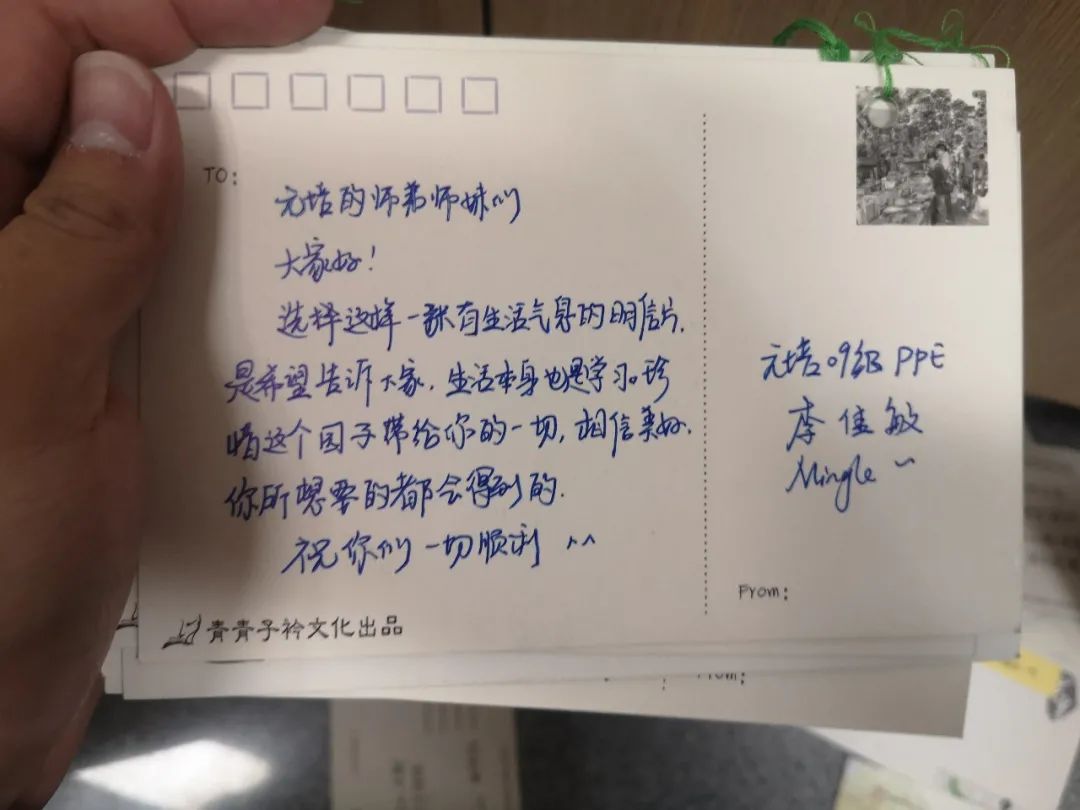 TO:
元培的师弟师妹们
大家好!
选择这样一张有生活气息的明信片,
是希望告诉大家,生活本身也是学习。珍
惜这个园子带给你的一切,相信美好,
你所想要的都会得到的.
祝你们一切顺利 ^^
青青子衿文化出品
元培09级 PPE
李佳敏
Mingle ~
From:
From: